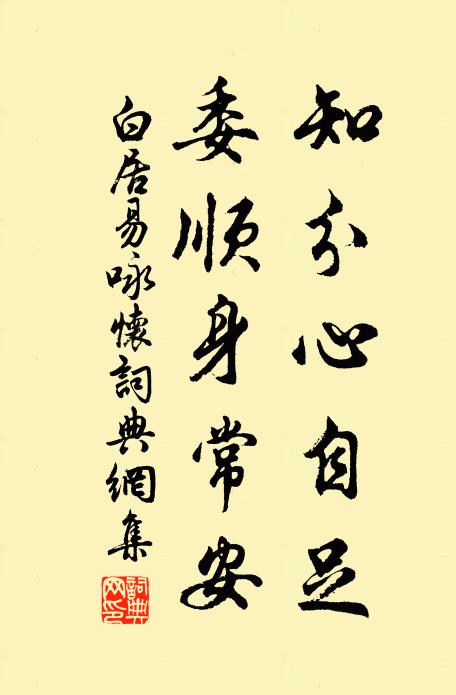 知分心自足
委順身常安
白居易咏懷詞典網集
詞典網印